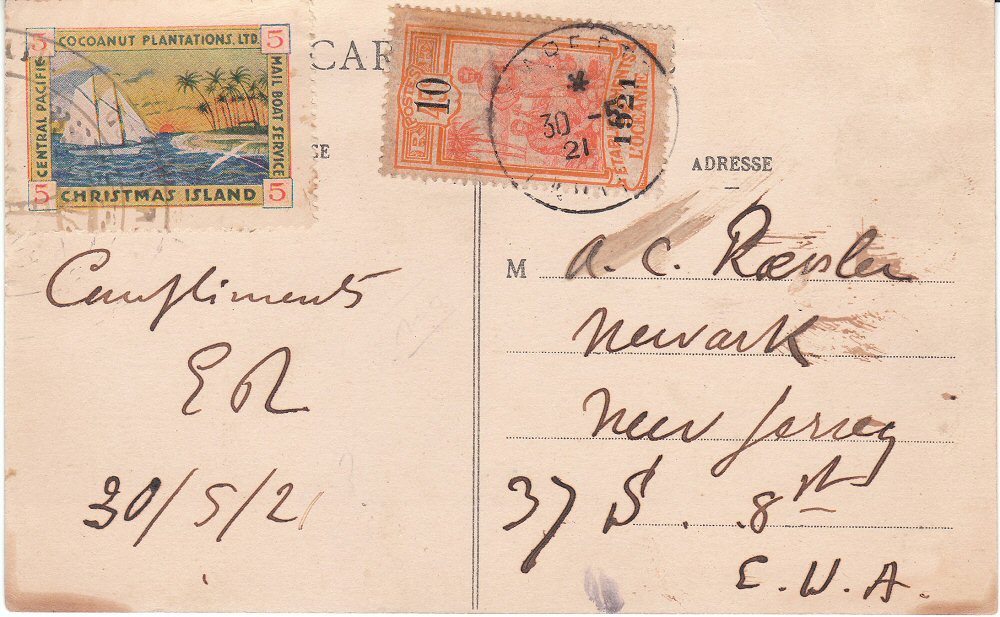 5 COCOANUT PLANTATIONS, LTD. 5
CENTRAL PACIFIC
MAIL BOAT SERVICE
5 CHRISTMAS ISLAND 5
CAR
10
POSTES
RF
1921
ETABLISSEMENTS
L'OCÉANIE
30 -5
21
ADRESSE
Compliments
ER
30/5/21
M A. C. Rœssler
Newark
New Jersey
37 S. 8st
E.U.A.